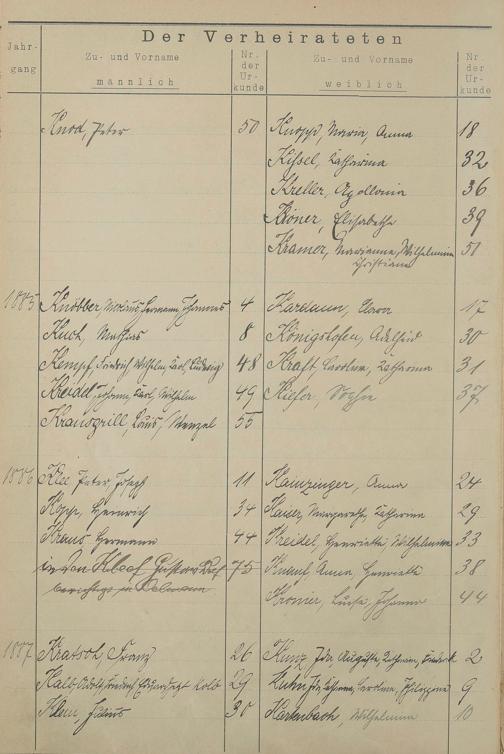 Der Verheirateten
Jahr-
gang
Zu- und Vorname
männlich
Nr.
der
Ur-
kunde
Zu- und Vorname
weiblich
Nr.
der
Ur-
kunde
Knod, Peter 50 Knopp, Maria, Anna 18
Kissel, Katharina 32
Kreller, Apollonia 36
Kröner, Elisabetha 39
Kramer, Marianne, Wilhelmine 51
Christiane
1885 Knöbber, Hermann, Johannes 4 17
Kuch, Mathias 8 Königstofen, Adelheid 30
Kempf, Friedrich Wilhelm, Karl, Ludwig 48 Kraft, Karoline, Katharina 31
Kreidel, Johann, Karl, Wilhelm 49 Kiefer, Sophie 37
Kransgrill, Louis, Wenzel 55
1886 Klee Peter, Joseph 11 Kainzinger, Anna 24
Kopp, Heinrich 34 Kaiser, Margaretha, Katharina 29
Kraus Hermann 44 Kreidel, Henriette, Wilhelmine 33
75 Knauf, Anna, Henriette 38
Kromer, Luise, Johanna 44
1887 Kratsch, Franz 26 Kunz Ida, Auguste, Katharina, 2
Kalb, Adolf, Friedrich Eduard jetzt Kolb 29 Karoline, Philippine 9
Klein, Julius 30 Kartenbach, Wilhelmine 10